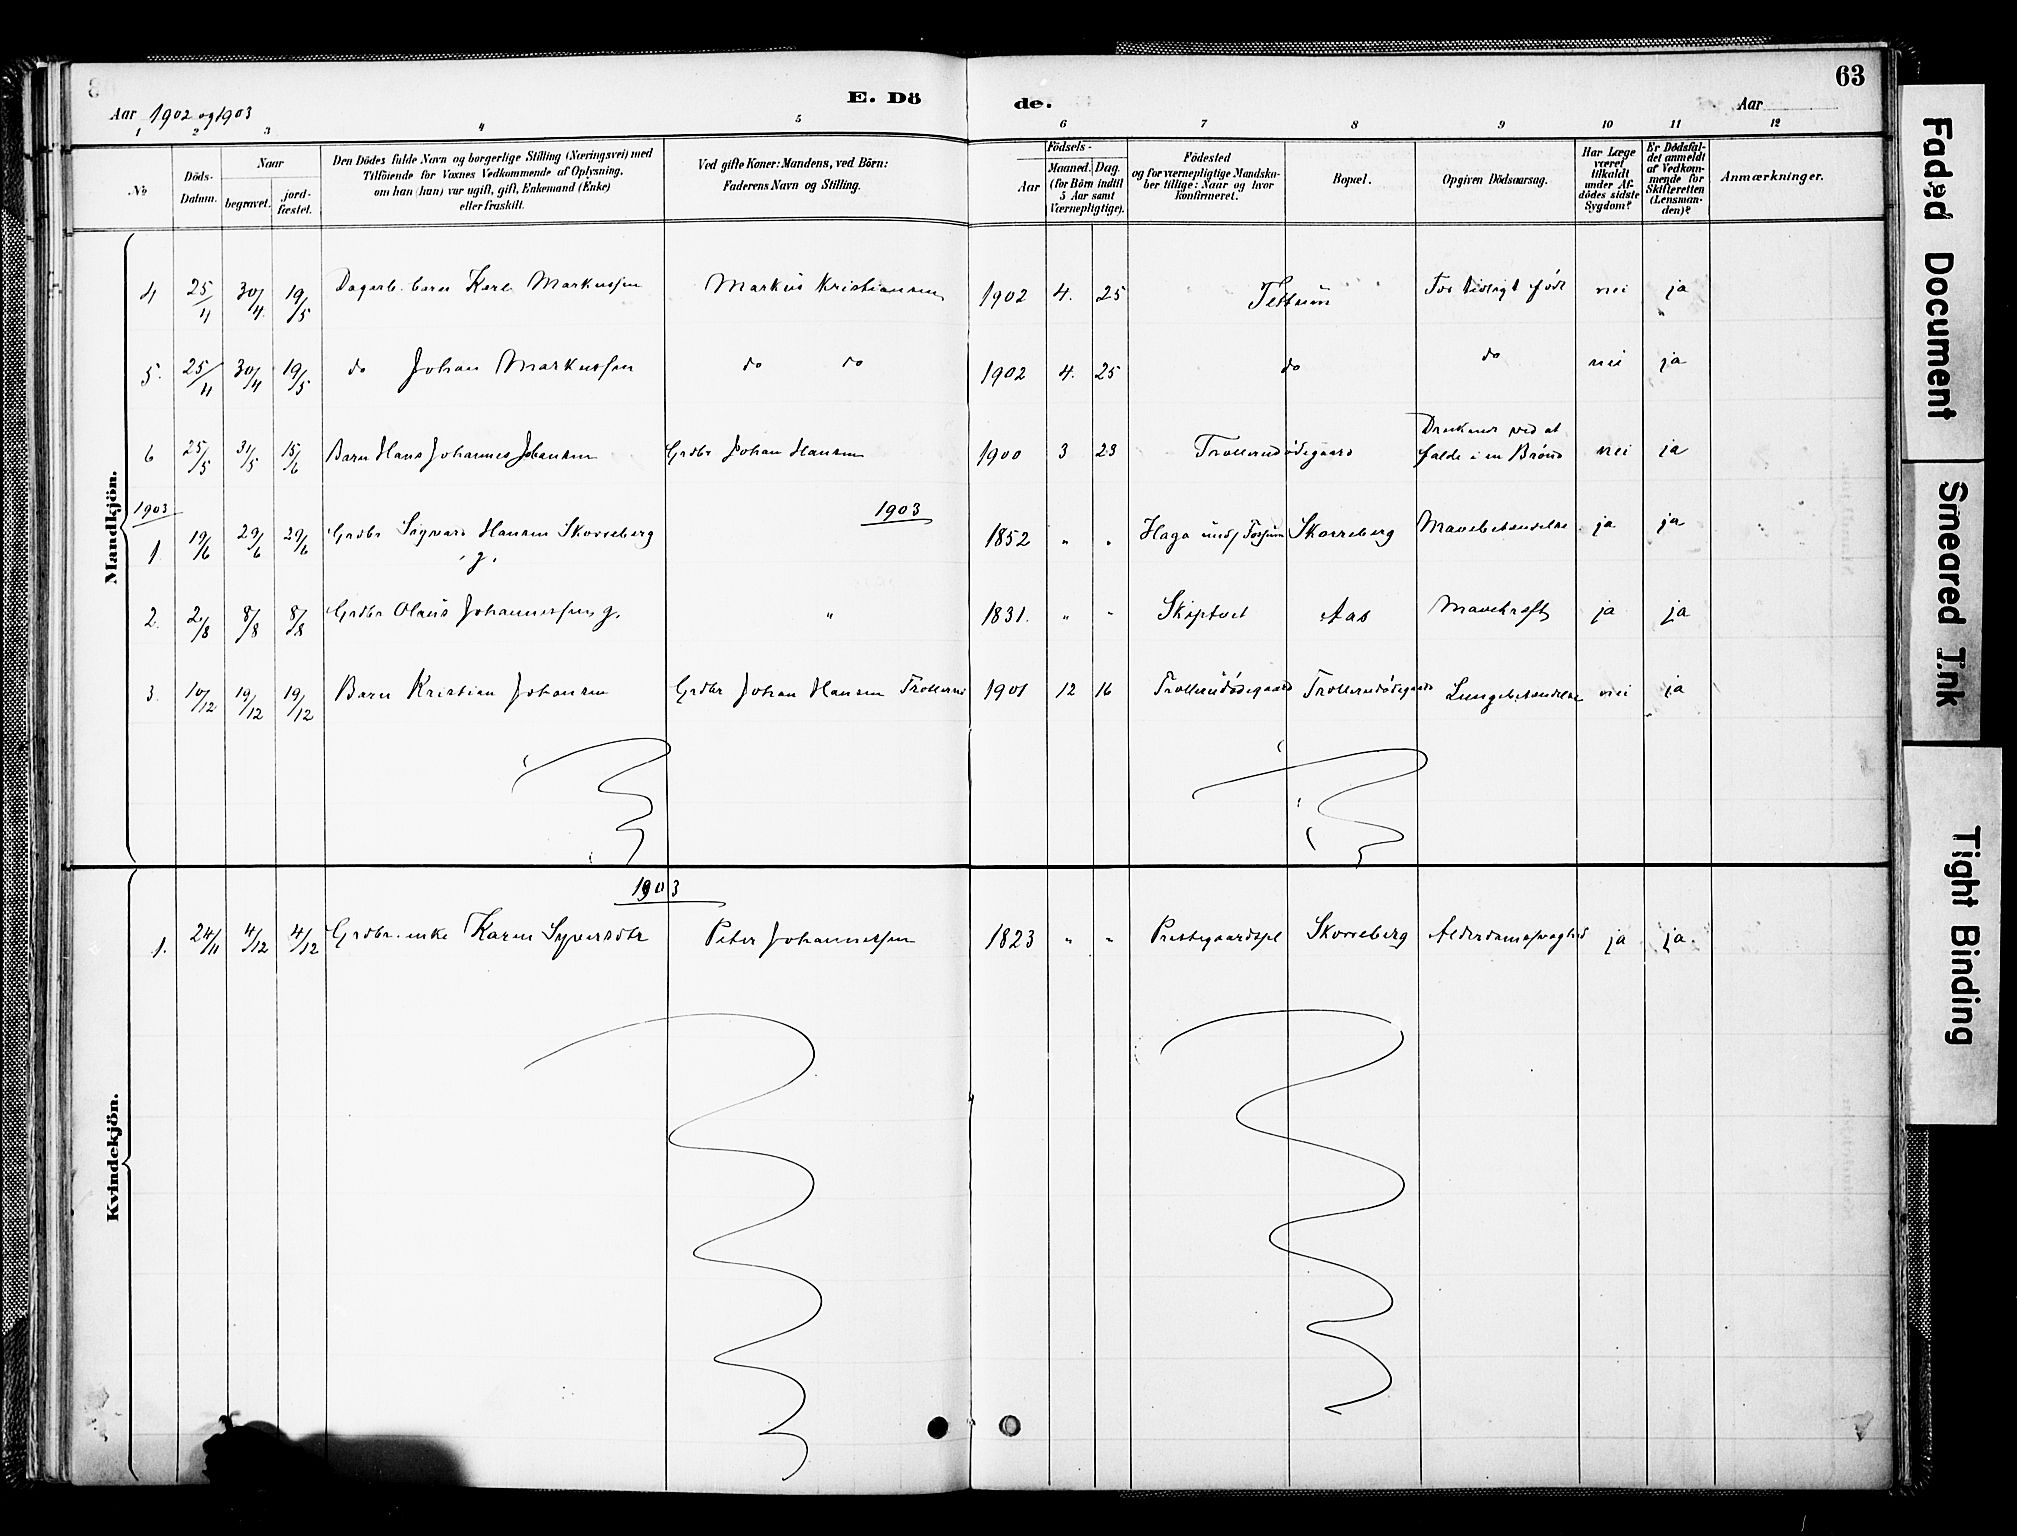 63
E. Dödе.
Aar 1902 og 1903
Aar
1 2 3 4 5 6 7 8 9 10 11 12
No
Döds-Datum.
Naar
begravet.
jord-fæstet.
Den Dödes fulde Navn og borgerlige Stilling (Næringsvei) med
Tilföiende for Voxnes Vedkommende af Oplysning,
om han (hun) var ugift, gift, Enkemand (Enke)
eller fraskilt.
Ved gifte Koner: Mandens, ved Börn:
Faderens Navn og Stilling.
Födsels-
Aar
Maaned. Dag.
(for Börn indtil
5 Aar samt
Værnepligtige).
Födested
og for værnepligtige Mandska-
ber tillige: Naar og hvor
konfirmeret.
Bopæl.
Opgiven Dödsaarsag.
Har Læge
været
tilkaldt
under Af-
dödes sidste
Sygdom?
Er Dödsfal-
det anmeldt
af Vedkom-
mende for
Skifteretten
(Lensman-
den)?
Anmærkninger.
Mandkjön.
4 25/4 30/4 19/5 Dagarb. barn Karl Markussen Markus Kristiansen 1902 4. 25 For tidligt född nei ja
5. 25/4 30/4 19/5 do Johan Markussen do do 1902 4. 25 do do nei ja
6 25/5 31/5 15/6 Barn Hans Johannes Johansen Grdbr Johan Hansen 1900 3 23 Trollerudödegaard Druknede ved at
falde i en Brönd nei ja
1903
1903
1 19/6 29/6 29/6 Grdbr Sigvard Hansen Skorreberg
g.
1852 " " Haga Skorreberg Mavebetændelse ja ja
2. 2/8 8/8 8/8 Grdbr Olaus Johannessen g. " 1831. " " Skiptvet Aas Mavekræft ja ja
3. 10/12 19/12 19/12 Barn Kristian Johansen Grdbr Johan Hansen Trollerud 1901 12 16 Trollerudödegaard Trollerudödegaard Lungebetændelse nei ja
Kvindekjön.
1903
1. 24/11 4/12 4/12 Grdbr. enke Karen Syversdtr Peter Johannessen 1823 " " Prestegaardspl Skorreberg Alderdomssvaghed ja ja.
Faded Document
Smeared Ink
Tight Binding